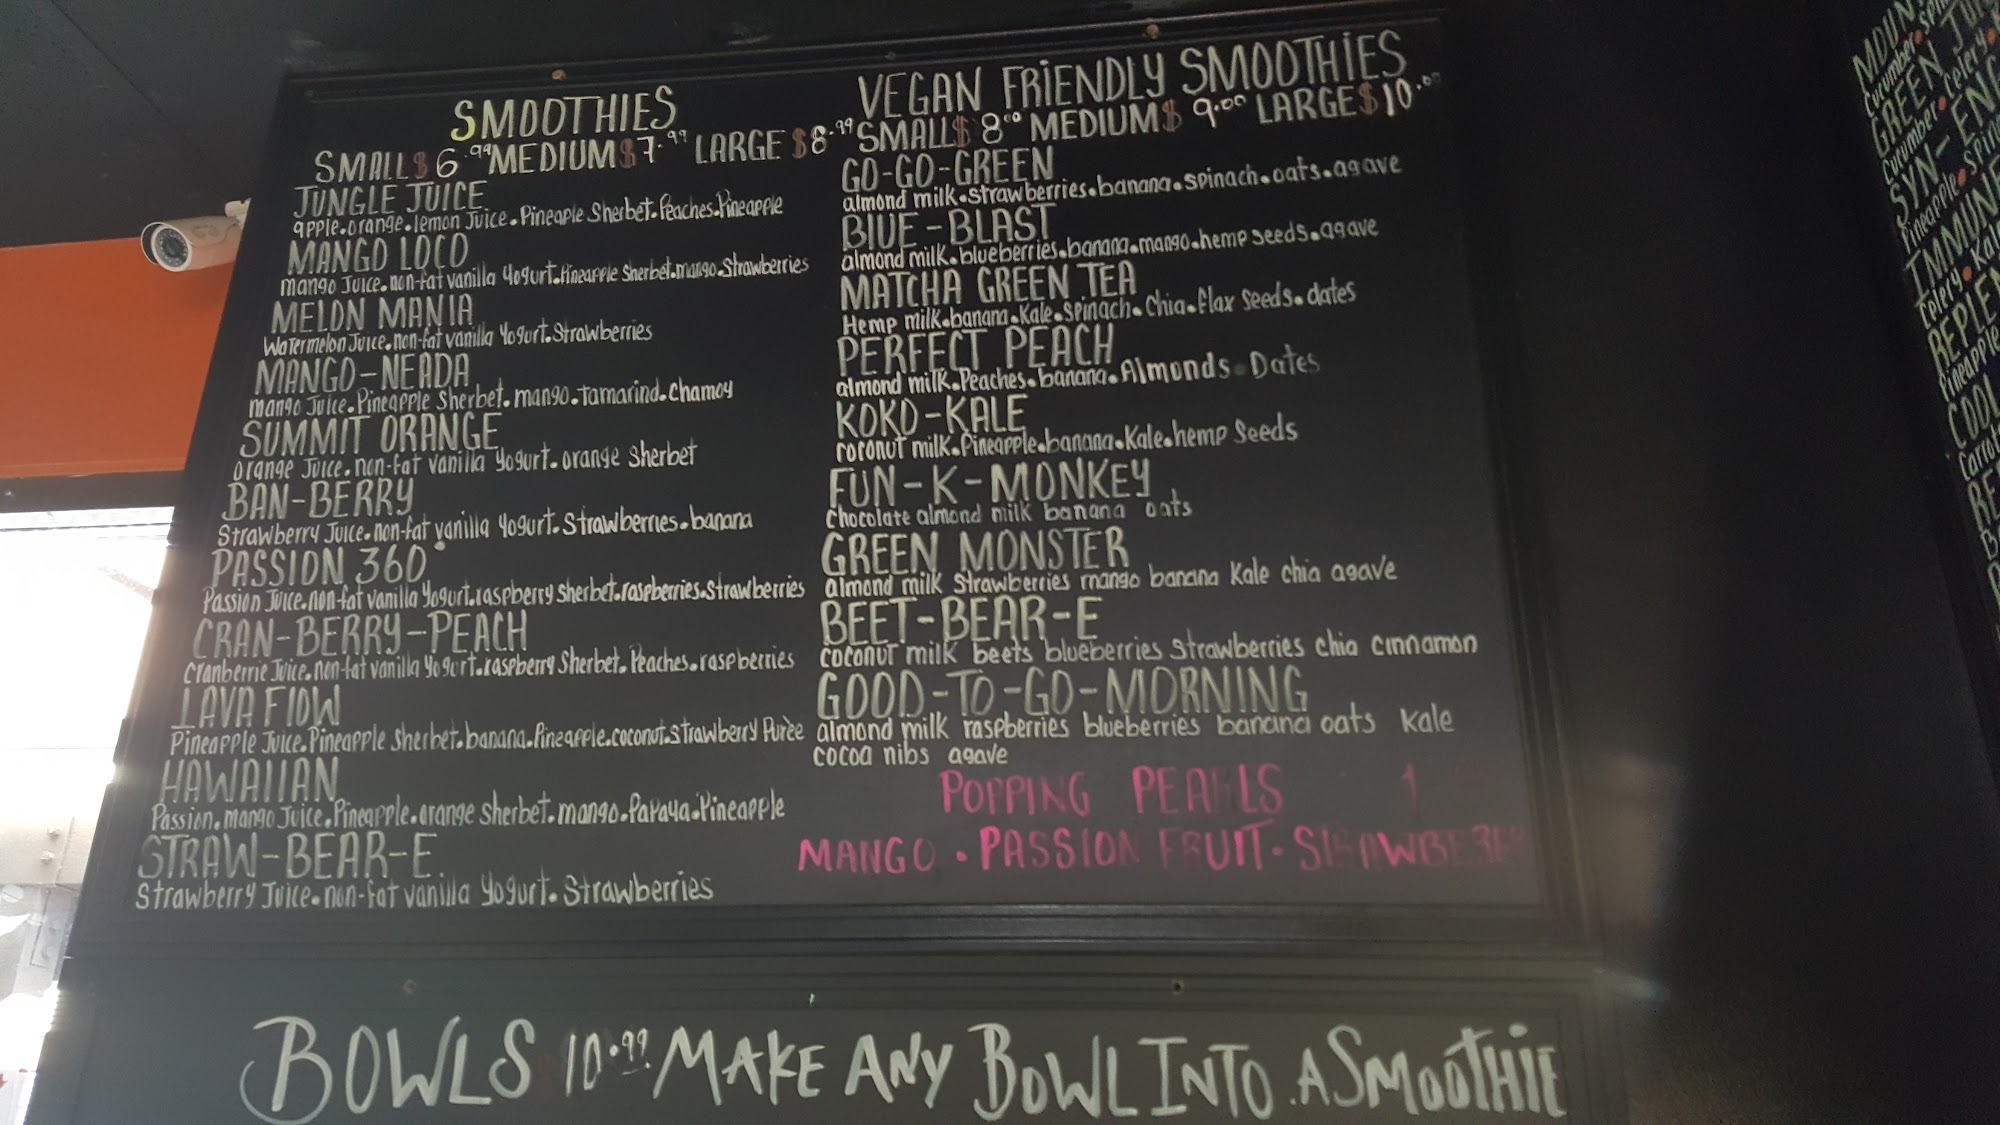 SMOOTHIES
SMALL $6.99 MEDIUM $7.99 LARGE $8.99
JUNGLE JUICE
apple.orange.lemon Juice.Pineaple Sherbet.Peaches.Pineapple
MANGO LOCO
mango Juice.non-fat vanilla Yogurt.Pineapple Sherbet.mango.Strawberries
MELON MANIA
Watermelon Juice.non-fat vanilla Yogurt.Strawberries
MANGO-NEADA
mango Juice.Pineapple Sherbet.mango.tamarind.Chamoy
SUMMIT ORANGE
orange Juice.non-fat vanilla Yogurt.orange Sherbet
BAN-BERRY
Strawberry Juice.non-fat vanilla Yogurt.Strawberries.banana
PASSION 360°
Passion Juice.non-fat vanilla Yogurt.raspberry Sherbet.raspberries.Strawberries
CRAN-BERRY-PEACH
Cranberrie Juice.non-fat vanilla Yogurt.raspberry Sherbet.Peaches.raspberries
LAVA FLOW
Pineapple Juice.Pineapple Sherbet.banana.Pineapple.coconut.Strawberry Purèe
HAWAIIAN
Passion.mango Juice.Pineapple.orange Sherbet.mango.Papaya.Pineapple
STRAW-BEAR-E.
Strawberry Juice.non-fat vanilla Yogurt.Strawberries
VEGAN FRIENDLY SMOOTHIES
SMALL $8.00 MEDIUM $9.00 LARGE $10.00
GO-GO-GREEN
almond milk.Strawberries.banana.Spinach.oats.agave
BLUE-BLAST
almond milk.blueberries.banana.mango.hemp seeds.agave
MATCHA GREEN TEA
Hemp milk.banana.Kale.Spinach.Chia.flax Seeds.dates
PERFECT PEACH
almond milk.Peaches.banana.Almonds.Dates
KOKO-KALE
coconut milk.Pineapple.banana.Kale.hemp Seeds
FUN-K-MONKEY
Chocolate almond milk banana oats
GREEN MONSTER
almond milk Strawberries mango banana Kale chia agave
BEET-BEAR-E
coconut milk beets blueberries Strawberries chia cinnamon
GOOD-TO-GO-MORNING
almond milk raspberries blueberries banana oats Kale
cocoa nibs agave
POPPING PEARLS 1
MANGO . PASSION FRUIT .
BOWLS 10.99 MAKE ANY BOWL INTO A SMOOTHIE
Cucumber
GREEN
Cucumber
Pineapple
Celery
Pineapple
COOL